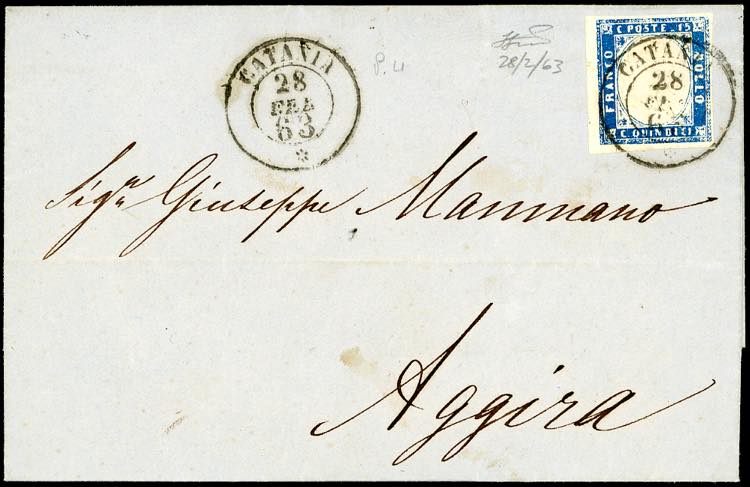 CATANIA
28
FEB
63
*
P. 4
28/2/63
C POSTE 15
FRANCO
BOLLO
C QUINDICI
CATAN
28
FEB
6
*
Sigr Giuseppe Mammano
Aggira